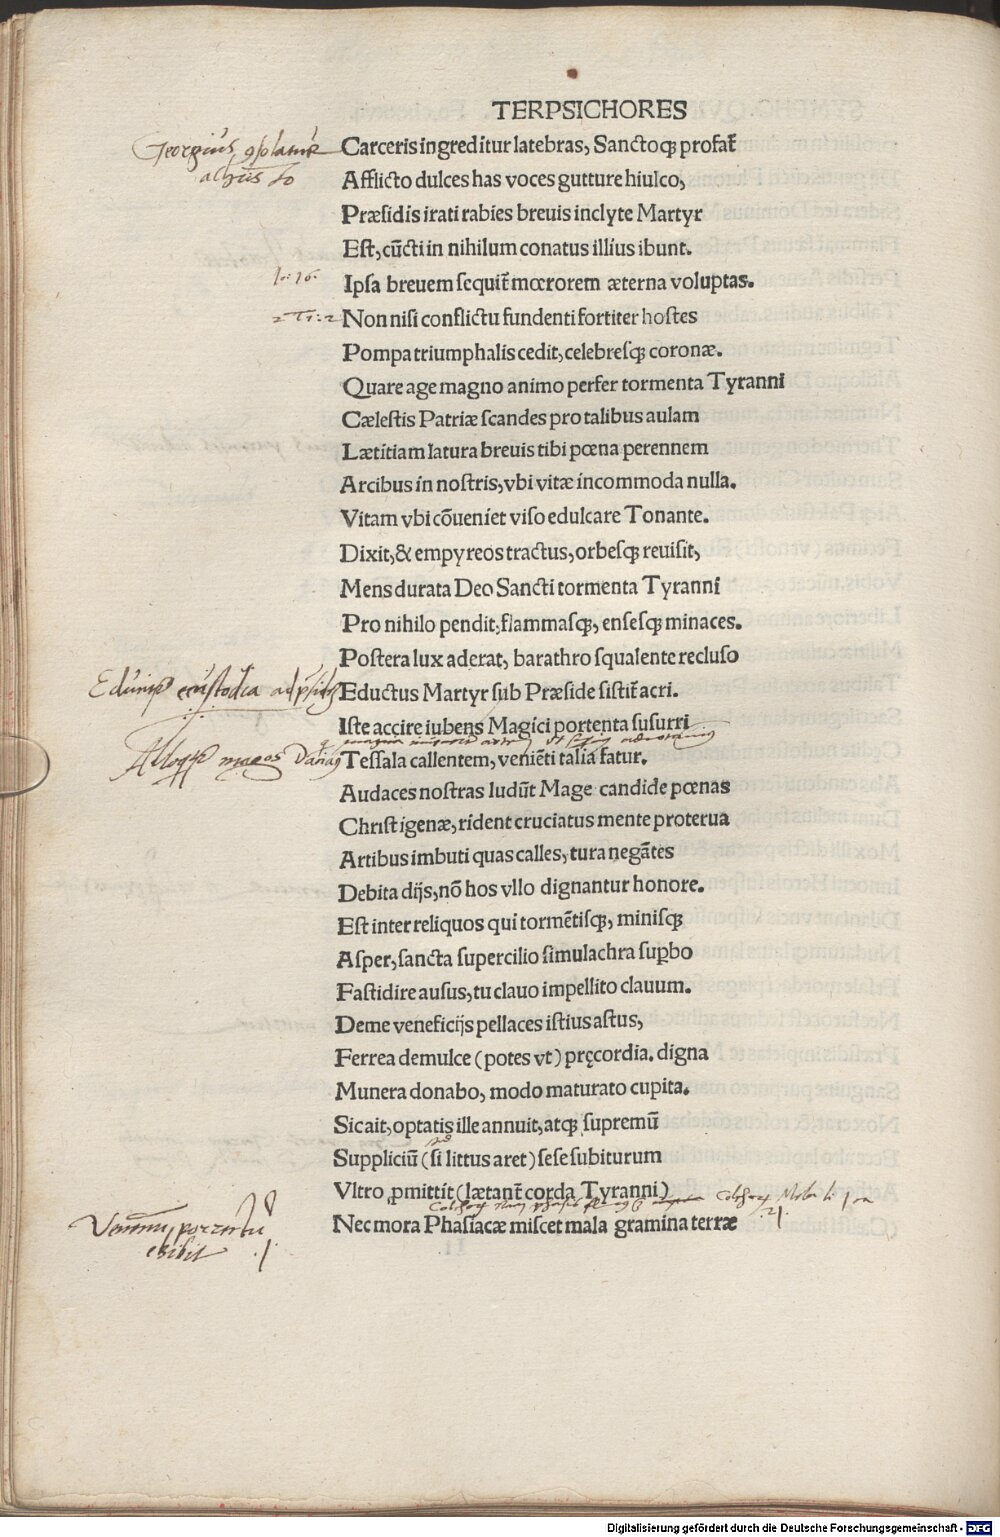 TERPSICHORES
Georgius
Carceris ingreditur latebras, Sanctoqꝫ profat᷑
Afflicto dulces has voces gutture hiulco,
Præsidis irati rabies breuis inclyte Martyr
Est, cūcti in nihilum conatus illius ibunt.
Io: 16.
Ipsa breuem sequit᷑ mœrorem æterna voluptas.
2 Ti: 2
Non nisi conflictu fundenti fortiter hostes
Pompa triumphalis cedit, celebresqꝫ coronæ.
Quare age magno animo perfer tormenta Tyranni
Cælestis Patriæ scandes pro talibus aulam
Lætitiam latura breuis tibi pœna perennem
Arcibus in nostris, vbi vitæ incommoda nulla.
Vitam vbi cōueniet viso edulcare Tonante.
Dixit, & empyreos tractus, orbesqꝫ reuisit,
Mens durata Deo Sancti tormenta Tyranni
Pro nihilo pendit, flammasqꝫ, ensesqꝫ minaces.
Postera lux aderat, barathro squalente recluso
custodia
Eductus Martyr sub Præside sistit᷑ acri.
Iste accire iubens Magici portenta susurri
magos
Tessala callentem, veniēti talia fatur.
Audaces nostras ludūt Mage candide pœnas
Christigenæ, rident cruciatus mente proterua
Artibus imbuti quas calles, tura negātes
Debita dijs, nō hos vllo dignantur honore.
Est inter reliquos qui tormētisqꝫ, minisqꝫ
Asper, sancta supercilio simulachra sup̱bo
Fastidire ausus, tu clauo impellito clauum.
Deme veneficijs pellaces istius astus,
Ferrea demulce (potes vt) pręcordia. digna
Munera donabo, modo maturato cupita.
Sic ait, optatis ille annuit, atqꝫ supremū
Suppliciū (si littus aret) sese subiturum
Vltro ꝓmittit (lætant᷑ corda Tyranni)
Nec mora Phasiacæ miscet mala gramina terræ
Digitalisierung gefördert durch die Deutsche Forschungsgemeinschaft - DFG